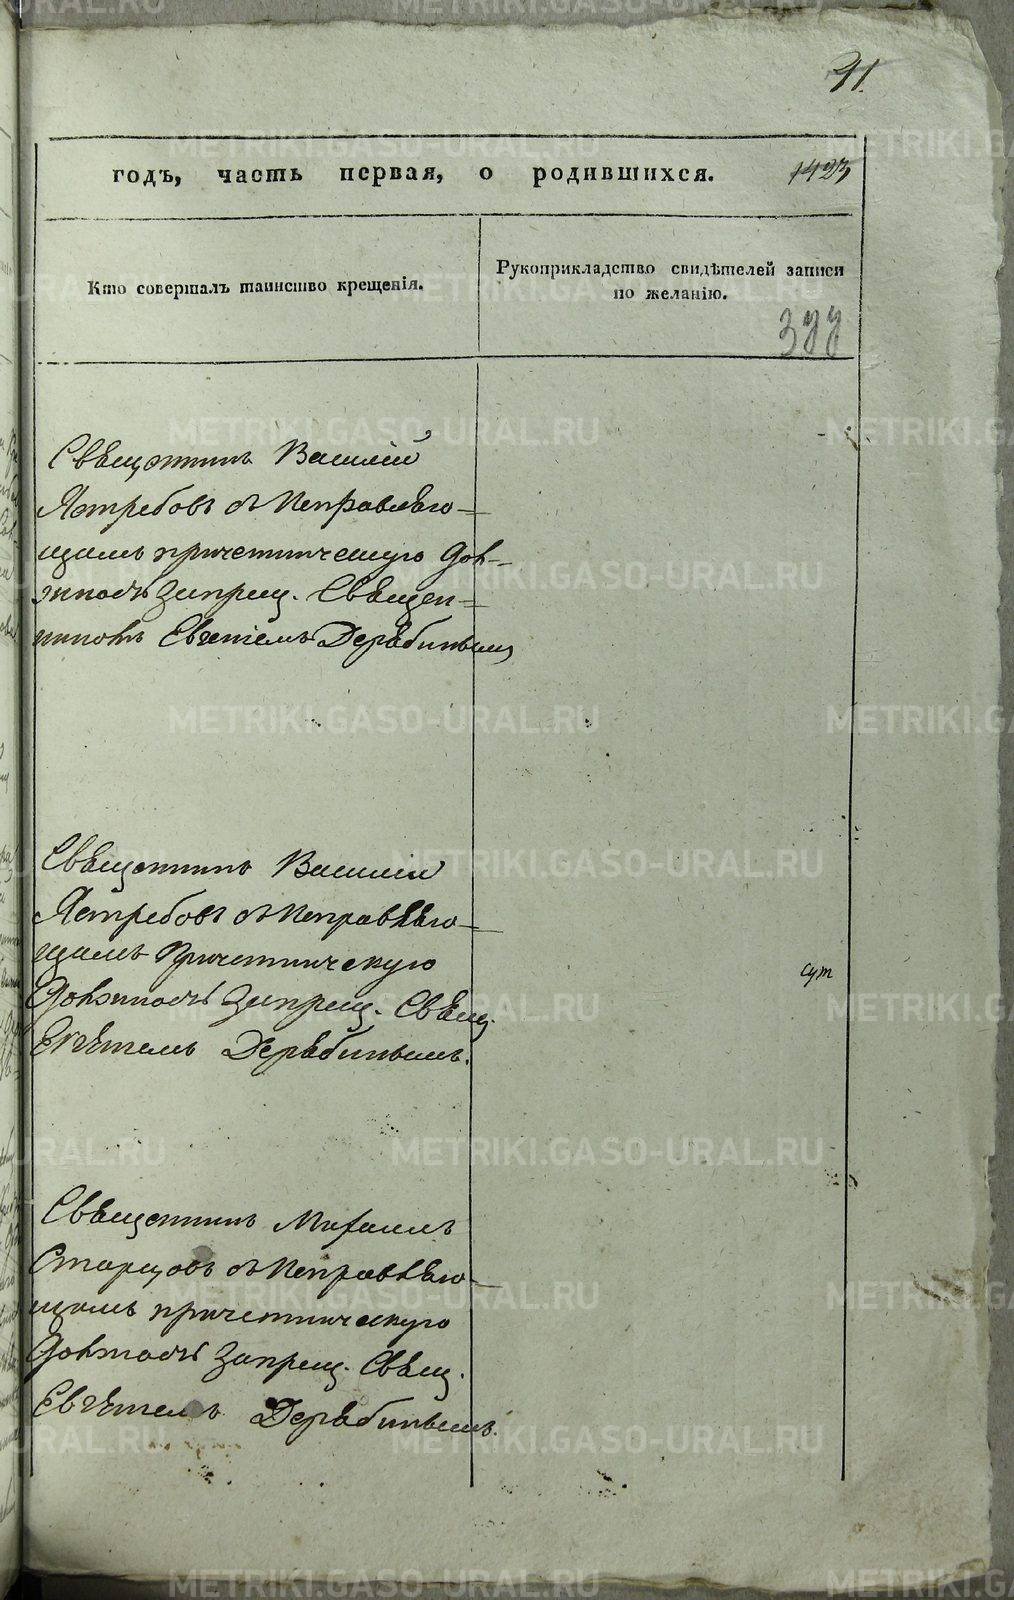 91.
годъ, часть первая, о родившихся. 1423
Кто совершалъ таинство крещенія.
Рукоприкладство свидѣтелей записи
по желанію.
377
Священникъ Василій
Ястребовъ съ исправляю-
щимъ причетническую дол-
жность запрещ. Священ-
никомъ Евгеніемъ Дерябинымъ
Священникъ Василій
Ястребовъ съ исправляю-
щимъ причетническую
должность запрещ. Свящ.
Евгеніемъ Дерябинымъ.
Священникъ Михаилъ
Старцовъ съ исправляю-
щимъ причетническую
должность запрещ. Свящ.
Евгеніемъ Дерябинымъ.
METRIKI.GASO-URAL.RU